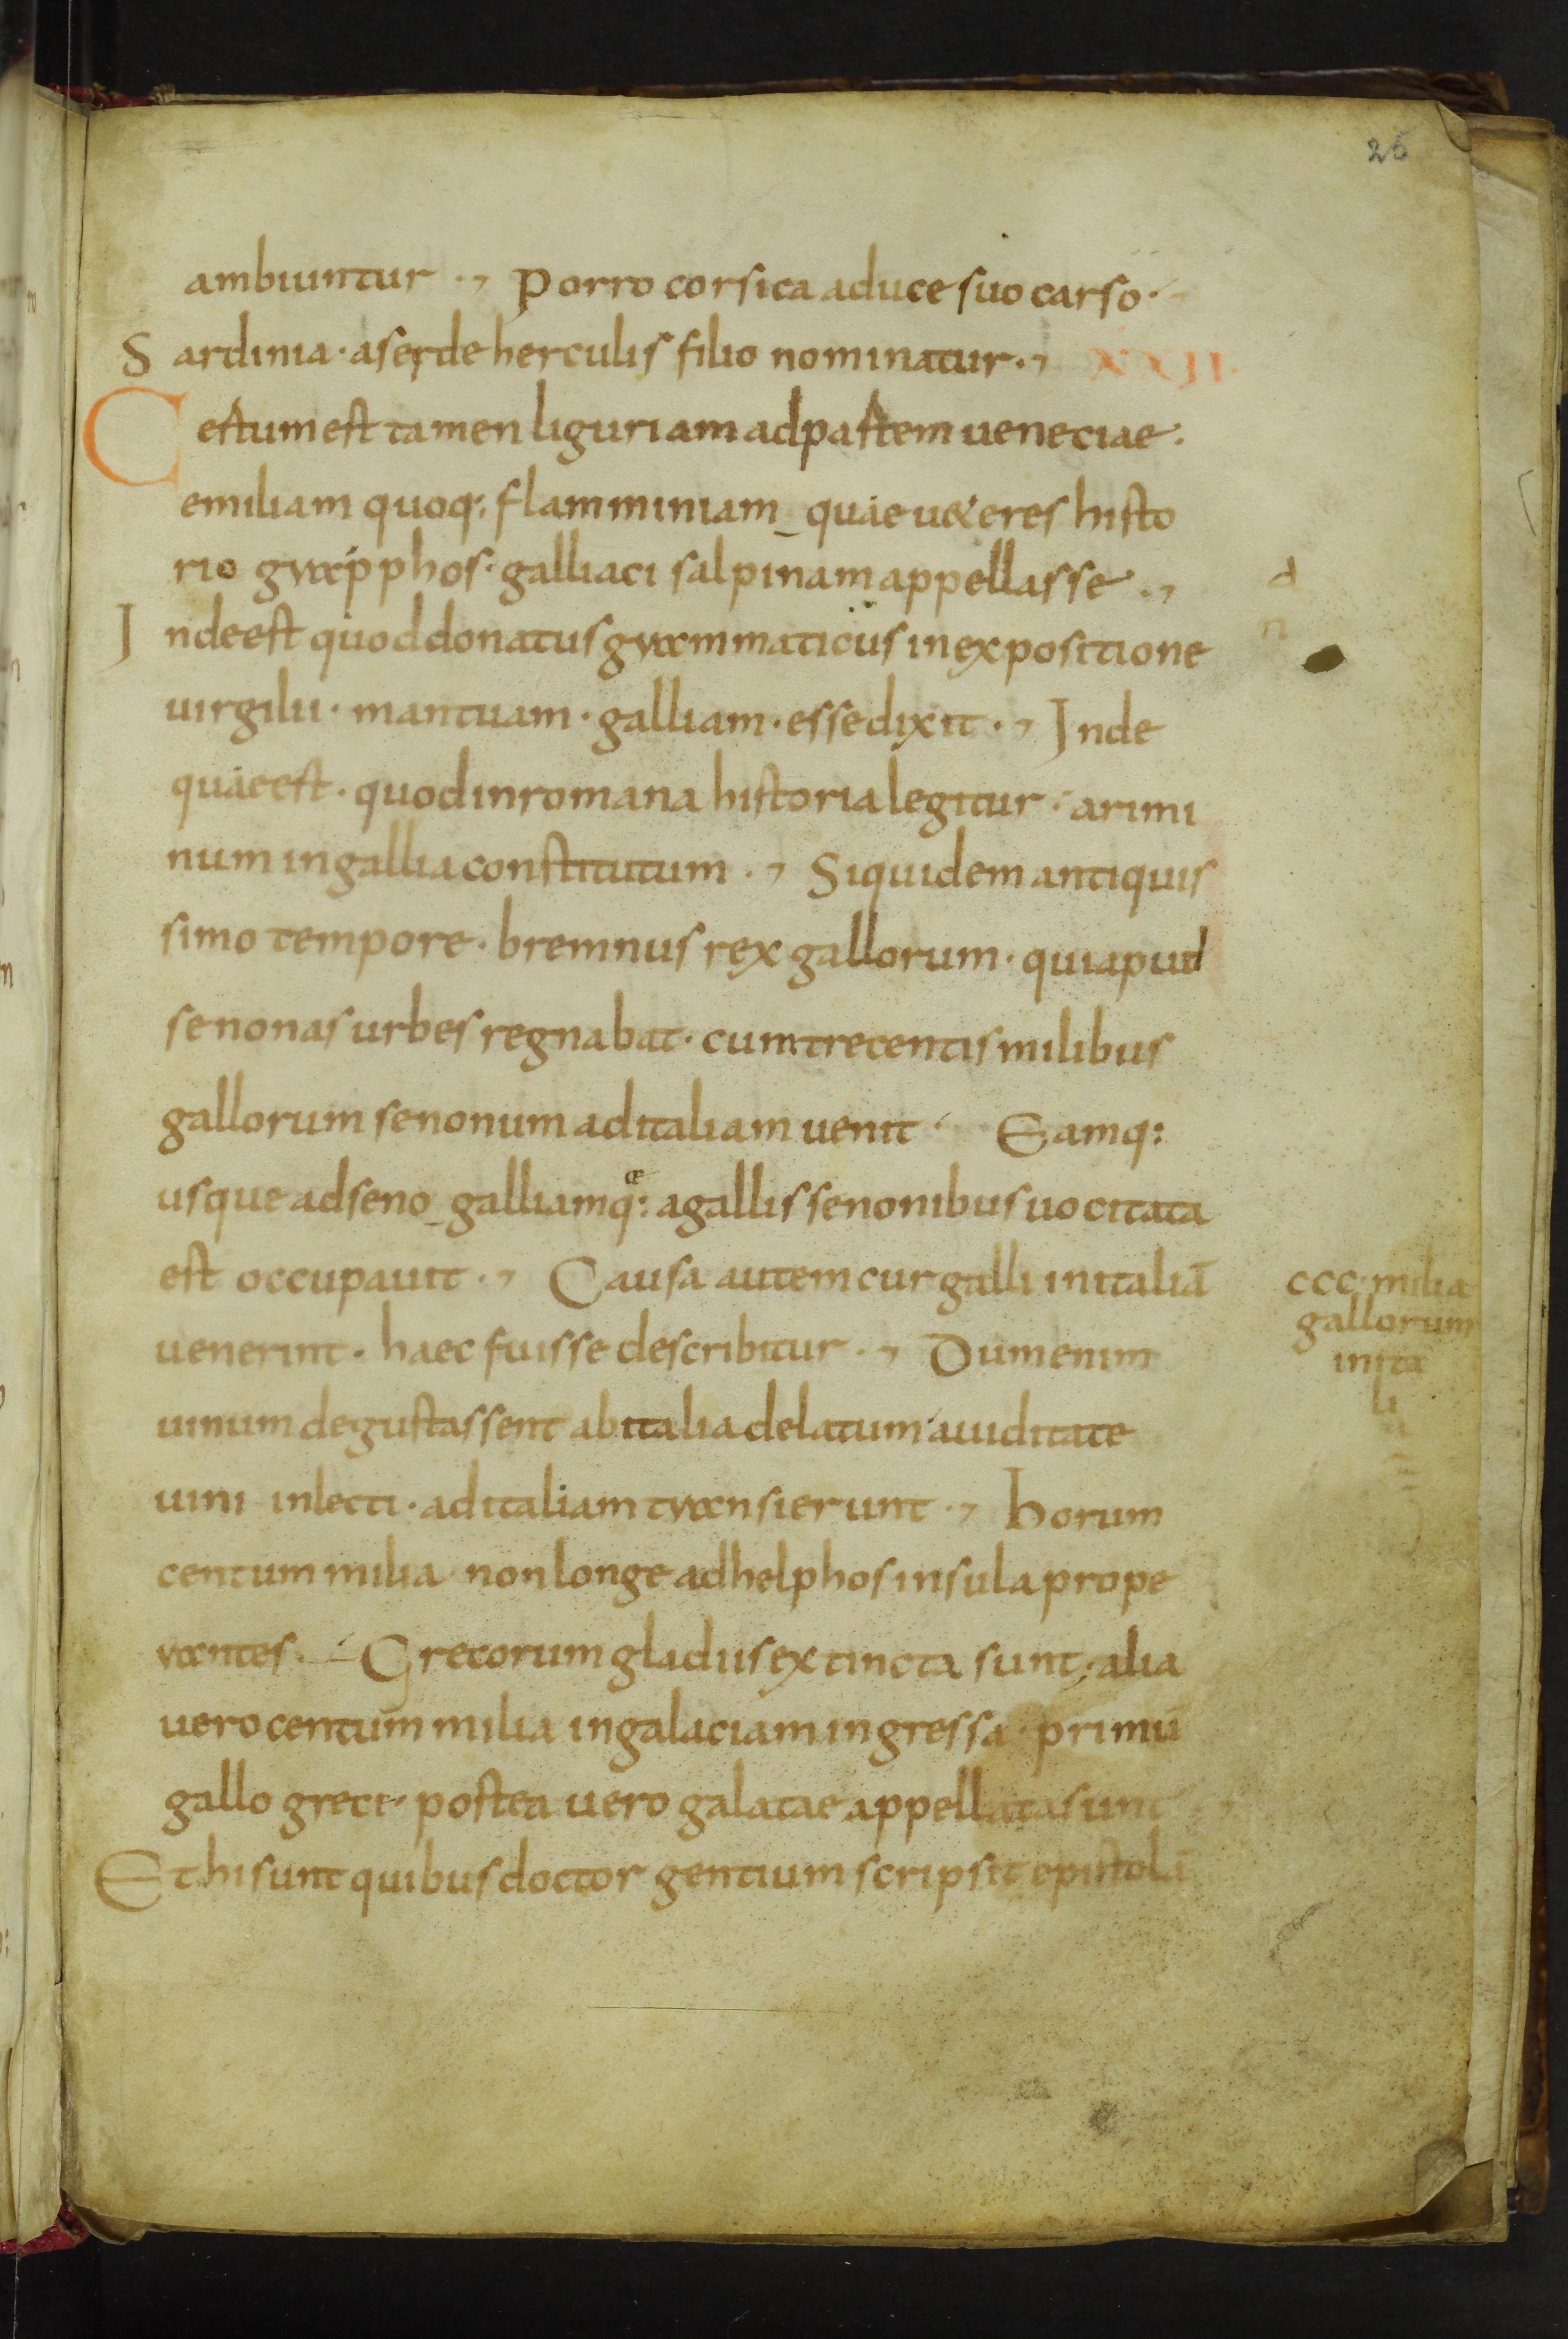 25
ambiuntur ·, Porro corsica aduce suo carso·
Sardinia · aserde herculis filio nominatur ·, XXII·
Certum est tamen liguriam ad partem ueneciae·
emiliam quoq: flamminiam_ quae ueteres histo
rio graphos· galliaci salpinam appellasse ·, d
Inde est quod donatus grammaticus in expositione n
uirgilii · mantuam · galliam · esse dixit ·, Inde
quae est · quod in romana historia legitur · arimi
num in gallia constitutum ·, Siquidem antiquis
simo tempore · bremnus rex gallorum · qui apud
senonas urbes regnabat · cum trecentis milibus
gallorum senonum ad italiam uenit · Eamq:
usque ad seno_galliam q:ae a gallis senonibus uocitata
est occupauit ·, Causa autem cur galli in italiā
uenerint · haec fuisse describitur ·, Dum enim
uinum degustassent ab italia delatum auiditate
uini inlecti · ad italiam transierunt ·, horum
centum milia · non longe adhelphos insula prope
rantes · Grecorum gladiis extincta sunt · alia
uero centum milia in galaciam ingressa · primū
gallo greci · postea uero galatae appellata sunt ·,
Et hi sunt quibus doctor gentium scripsit epistolā
ccc· milia
gallorum
in ita
li